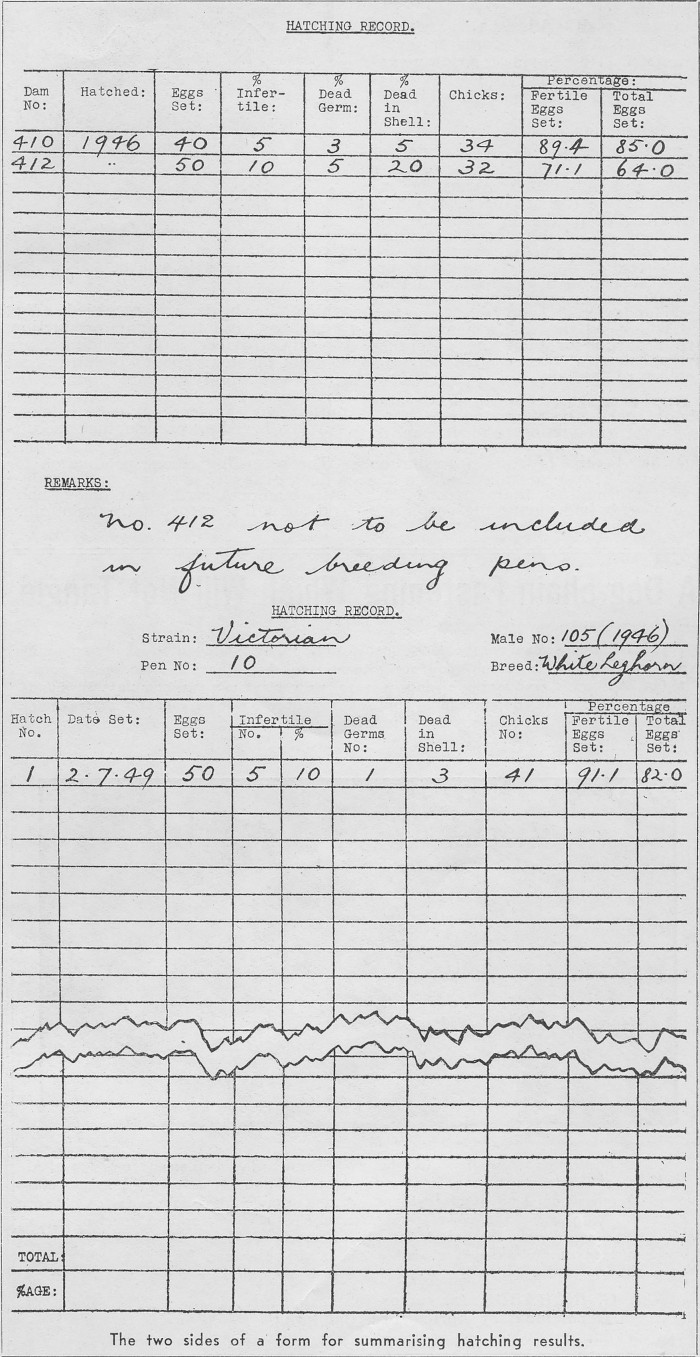 HATCHING RECORD.
Percentage:
Dam No: Hatched: Eggs Set: % Infer-tile: % Dead Germ: % Dead in Shell: Chicks: Fertile Eggs Set: Total Eggs Set:
410 1946 40 5 3 5 34 89·4 85·0
412 " 50 10 5 20 32 71·1 64·0
REMARKS:
No. 412 not to be included
in future breeding pens.
HATCHING RECORD.
Strain: Victorian Male No: 105 (1946)
Pen No: 10 Breed: White Leghorn
Percentage
Hatch No. Date Set: Eggs Set: Infertile No. % Dead Germs No: Dead in Shell: Chicks No: Fertile Eggs Set: Total Eggs Set:
1 2·7·49 50 5 10 1 3 41 91·1 82·0
TOTAL:
%AGE:
The two sides of a form for summarising hatching results.